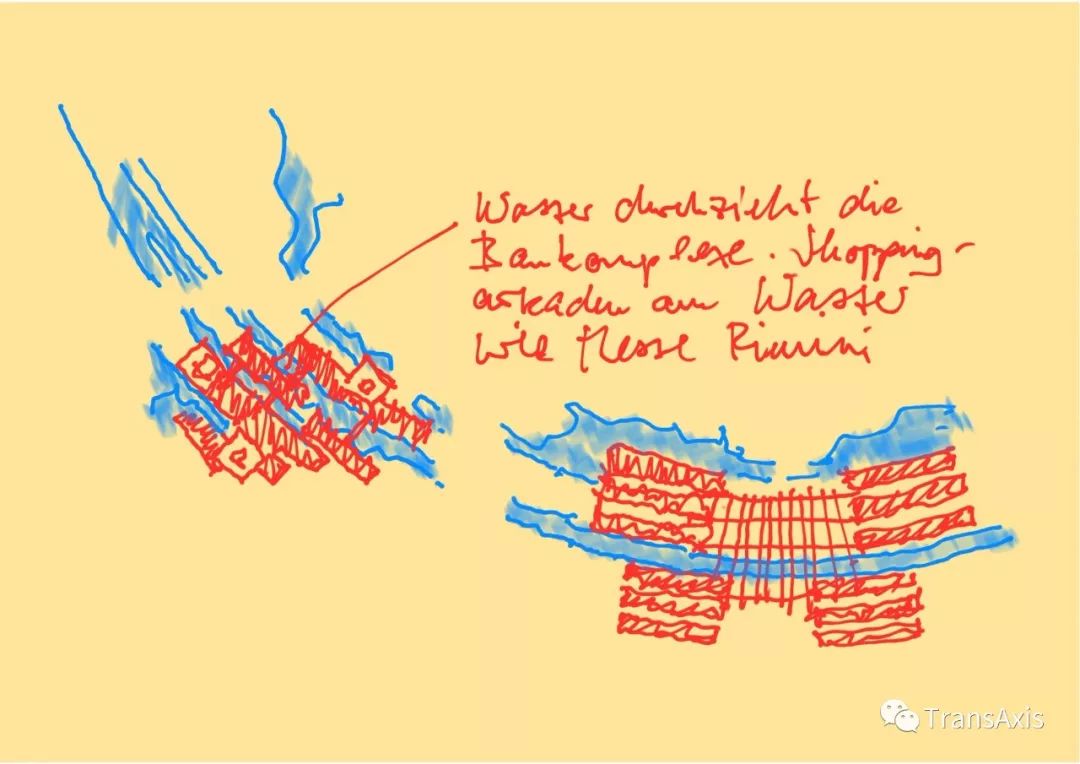 Wasser durchzieht die
Baukomplexe. Shopping-
arkaden am Wasser
wie Messe Rimini
TransAxis